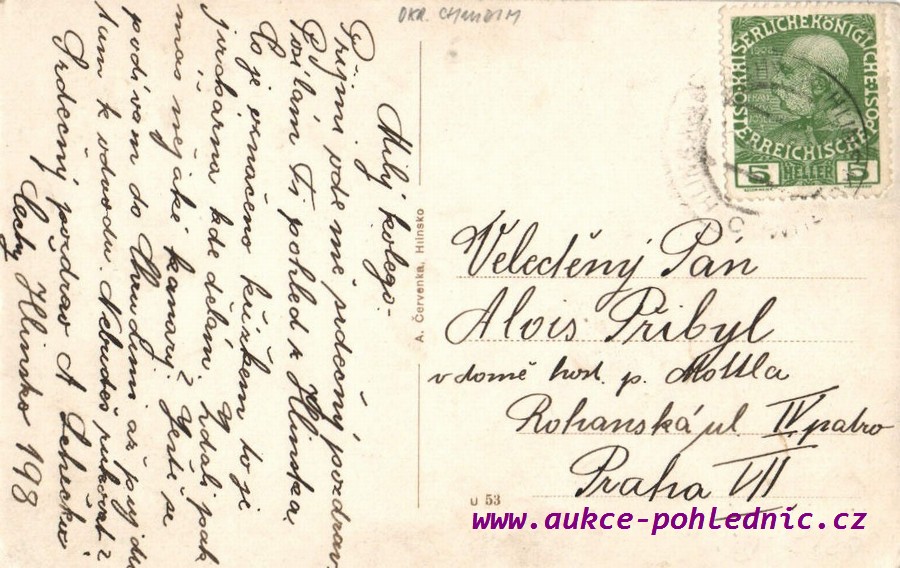 OKR. CHRUDIM
Milý kolego.
Prijmi ode mě srdečný pozdrav
Posílám Ti pohled z Hlinska
Co je označeno křížkem to je
jirchárna kde dělám. Vzdali pak
mas nějaké kanary? Jestli se
podívam do Chrudimi až přijedu
tum k odvodu. Nebudeš rukovat?
Srdečný pozdrav A
Čechy Hlinsko 198
A. Červenka, Hlinsko
U 53
KAISERLICHE KÖNIGLICHE
ÖSTERREICHISCHE
1908
5 HELLER 5
Velectěný Pán
Alois Přibyl
v domě host. p. Mottla
Rohanská ul. IV. patro
Praha VIII
www.aukce-pohlednic.cz